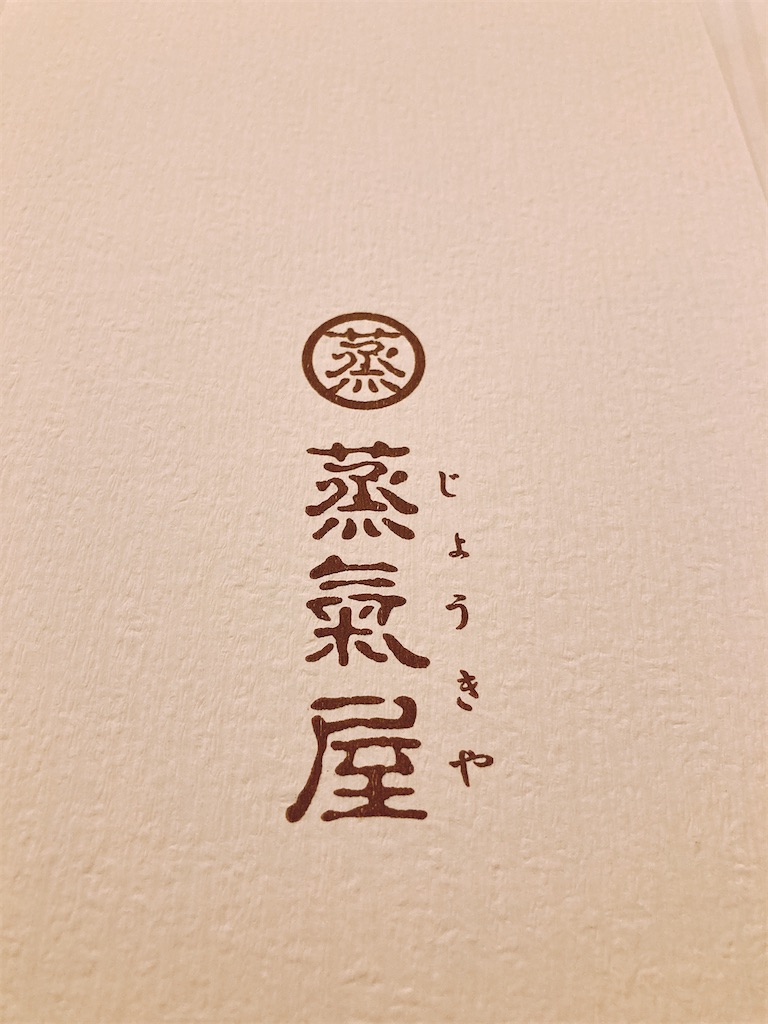 蒸
蒸氣屋
じょうきや